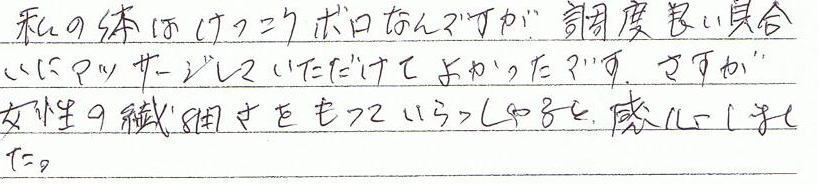 私の体はけっこうボロなんですが、調度良い具合
いにマッサージしていただけてよかったです。さすが
女性の繊細さをもっていらっしゃると、感心しまし
た。